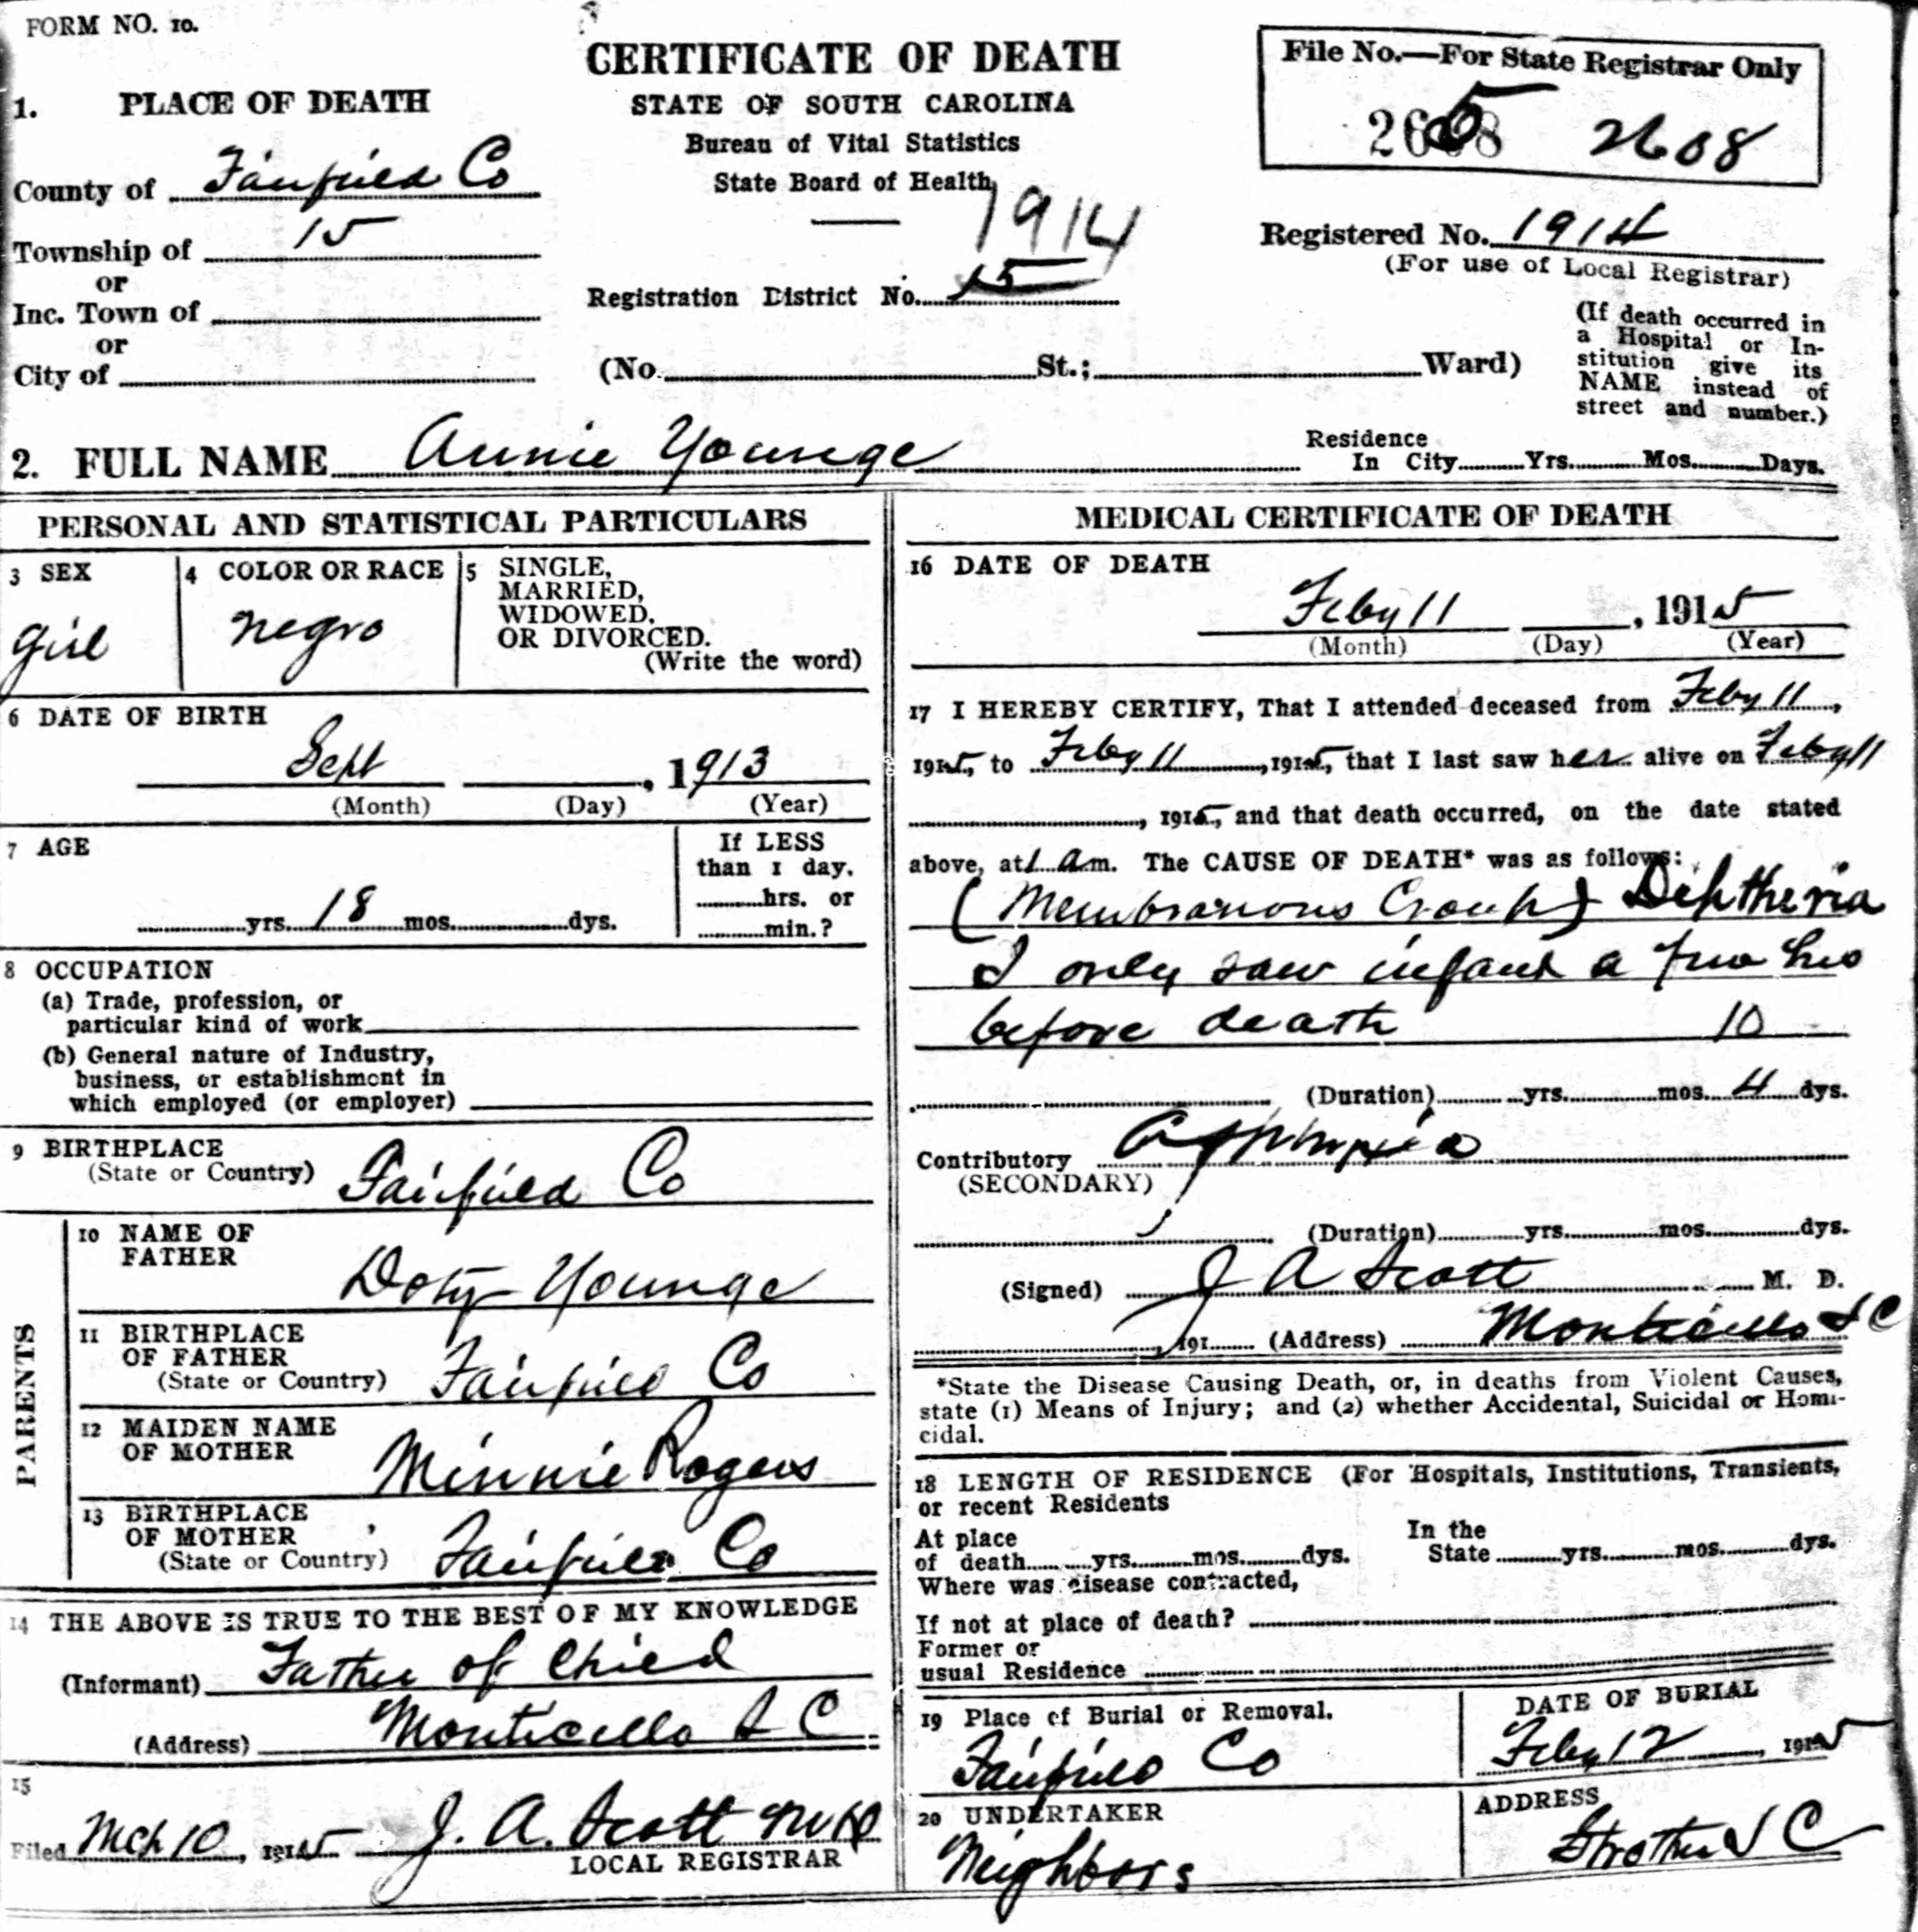 FORM NO. 10.
CERTIFICATE OF DEATH
STATE OF SOUTH CAROLINA
Bureau of Vital Statistics
State Board of Health
1914
File No.—For State Registrar Only
2608 2608
1. PLACE OF DEATH
County of Fairfield Co
Township of 15
or
Inc. Town of
or
City of
Registration District No. 15
Registered No. 1914
(For use of Local Registrar)
(No. St.; Ward)
(If death occurred in
a Hospital or In-
stitution give its
NAME instead of
street and number.)
2. FULL NAME Annie Younge
Residence
In City Yrs. Mos. Days.
PERSONAL AND STATISTICAL PARTICULARS
3 SEX
Girl
4 COLOR OR RACE
negro
5 SINGLE,
MARRIED,
WIDOWED,
OR DIVORCED.
(Write the word)
6 DATE OF BIRTH
Sept , 1913
(Month) (Day) (Year)
7 AGE
yrs. 18 mos. dys.
If LESS
than 1 day.
hrs. or
min.?
8 OCCUPATION
(a) Trade, profession, or
particular kind of work
(b) General nature of Industry,
business, or establishment in
which employed (or employer)
9 BIRTHPLACE
(State or Country) Fairfield Co
PARENTS
10 NAME OF
FATHER
Doty Younge
11 BIRTHPLACE
OF FATHER
(State or Country) Fairfield Co
12 MAIDEN NAME
OF MOTHER
Minnie Rogers
13 BIRTHPLACE
OF MOTHER
(State or Country) Fairfield Co
14 THE ABOVE IS TRUE TO THE BEST OF MY KNOWLEDGE
(Informant) Father of Child
(Address) Monticello S C
15
Filed Mch 10, 1915 J. A. Scott
LOCAL REGISTRAR
MEDICAL CERTIFICATE OF DEATH
16 DATE OF DEATH
Feby 11 , 1915
(Month) (Day) (Year)
17 I HEREBY CERTIFY, That I attended deceased from Feby 11,
1915, to Feby 11, 1915, that I last saw her alive on Feby 11
, 1915, and that death occurred, on the date stated
above, at 1 a.m. The CAUSE OF DEATH* was as follows:
(Membranous Croup) Diphtheria
I only saw infant a few hrs
before death 10
(Duration) yrs. mos. 4 dys.
Contributory
(SECONDARY)
(Duration) yrs. mos. dys.
(Signed) J A Scott M. D.
, 191 (Address) Monticello S C
*State the Disease Causing Death, or, in deaths from Violent Causes,
state (1) Means of Injury; and (2) whether Accidental, Suicidal or Homi-
cidal.
18 LENGTH OF RESIDENCE (For Hospitals, Institutions, Transients,
or recent Residents
At place
of death yrs. mos. dys.
In the
State yrs. mos. dys.
Where was disease contracted,
If not at place of death?
Former or
usual Residence
19 Place of Burial or Removal.
Fairfield Co
DATE OF BURIAL
Feby 12, 1915
20 UNDERTAKER
Neighbors
ADDRESS
Strother S C